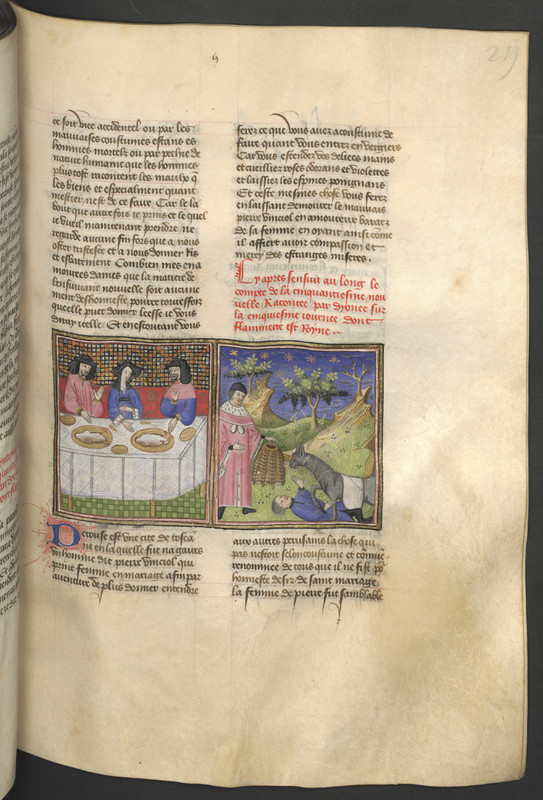 219
et soit vice accidentel ou par les
mauvaises coustumes estans es
hommes mortelz ou par pechie de
nature humaine que les hommes
plus tost racontent les maulx q
les biens et especialment quant
mestier nest de ce faire Car le la
bour que autre fois ie prins et le quel
ie vueil maintenant prendre ne
regarde aucune fin fors que a nous
oster tristesse et a nous donner ris
et esbatement Combien mes en a
mourees dames que la matiere de
lensuivant nouvelle soit aucune
ment deshonneste pource toutesfois
quelle puet donner leesse ie vous
diray icelle Et en escoutant vous
ferez ce que vous avez acoustume de
faire quant vous entrez en vergiers
Car vous estendez vos delices mains
et cueilliez roses odorans et violettes
et laissiez les espines poingnans
Et ceste mesmes chose vous ferez
en laissant demourer le mauvais
pierre vinciol en amoureux baratz
de sa femme en oyant ainsi come
il affiert avoir compassion et
mercy des estranges miseres .
Cy apres sensuit au long le
compte de la cinquantiesme nou
velle Racontee par dyonee sur
la cinquiesme iournee dont
flammette est Royne .
Perouse est une cite de tosca
ne en laquelle fut na gaires
un homme dit pierre vinciol qui
print femme en mariage affin par
aventure de plus donner entendre
aux autres perusains la chose qui
pas nestoit
renommee de tous que il ne fist po
honneste desir de saint mariage
la femme de pierre fut samblable